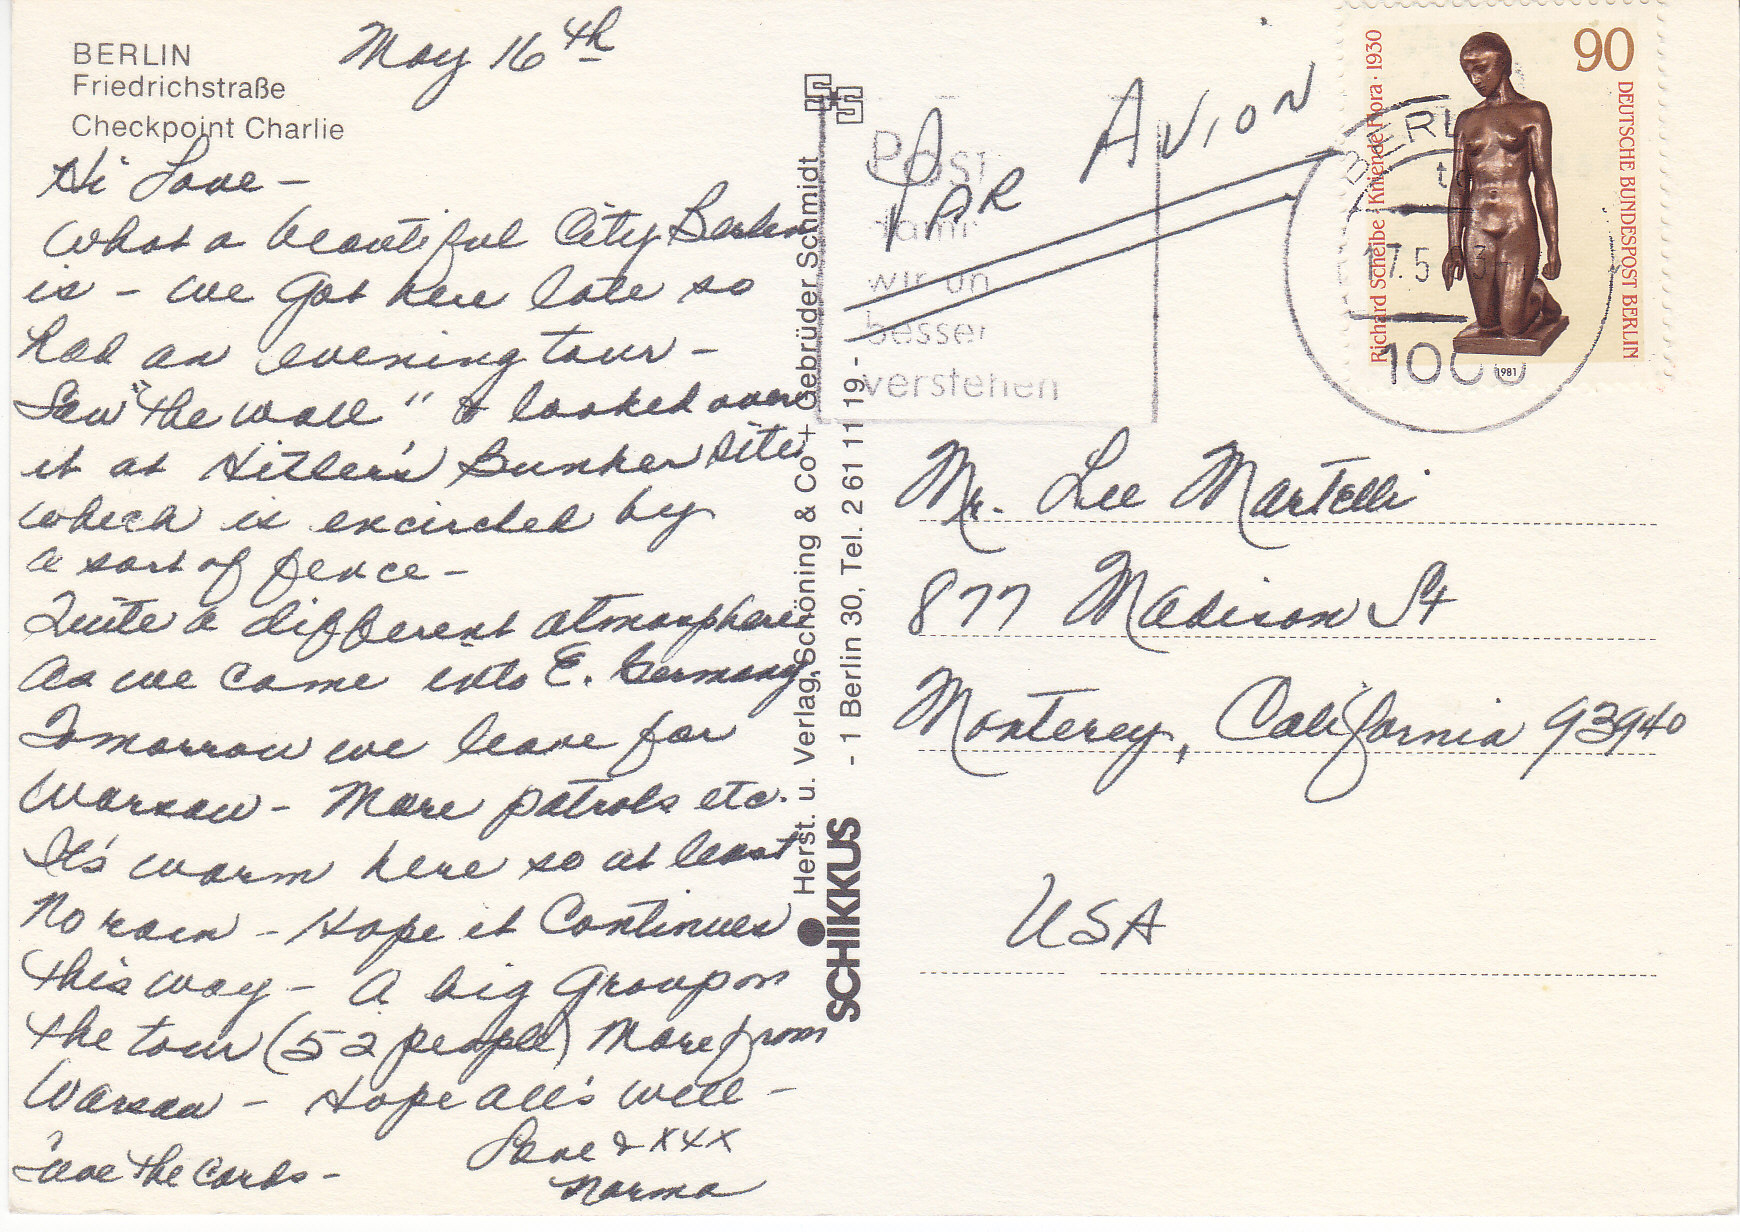 BERLIN
Friedrichstraße
Checkpoint Charlie
May 16th
Hi Love -
What a beautiful City Berlin
is - we got here late so
had an evening tour -
Saw "the wall" & looked over
it at Hitler's Bunker site
which is encircled by
a sort of fence -
Quite a different atmosphere
as we came into E. Germany
Tomorrow we leave for
Warsaw - More patrols etc.
It's warm here so at least
no rain - Hope it Continues
this way - A big Group on
the tour (52 people) More from
Warsaw - Hope all's well -
Love & XXX
Norma
Save the cards -
Herst. u. Verlag Schöning & Co + Gebrüder Schmidt
SCHIKKUS - 1 Berlin 30, Tel. 2 61 11 19 -
Post
damit
wir uns
besser
verstehen
PAR AVION
BERLIN
17.5
1000
90
DEUTSCHE BUNDESPOST BERLIN
Richard Scheibe · Kniende Flora · 1930
1981
Mr. Lee Martelli
877 Madison St
Monterey, California 93940
USA